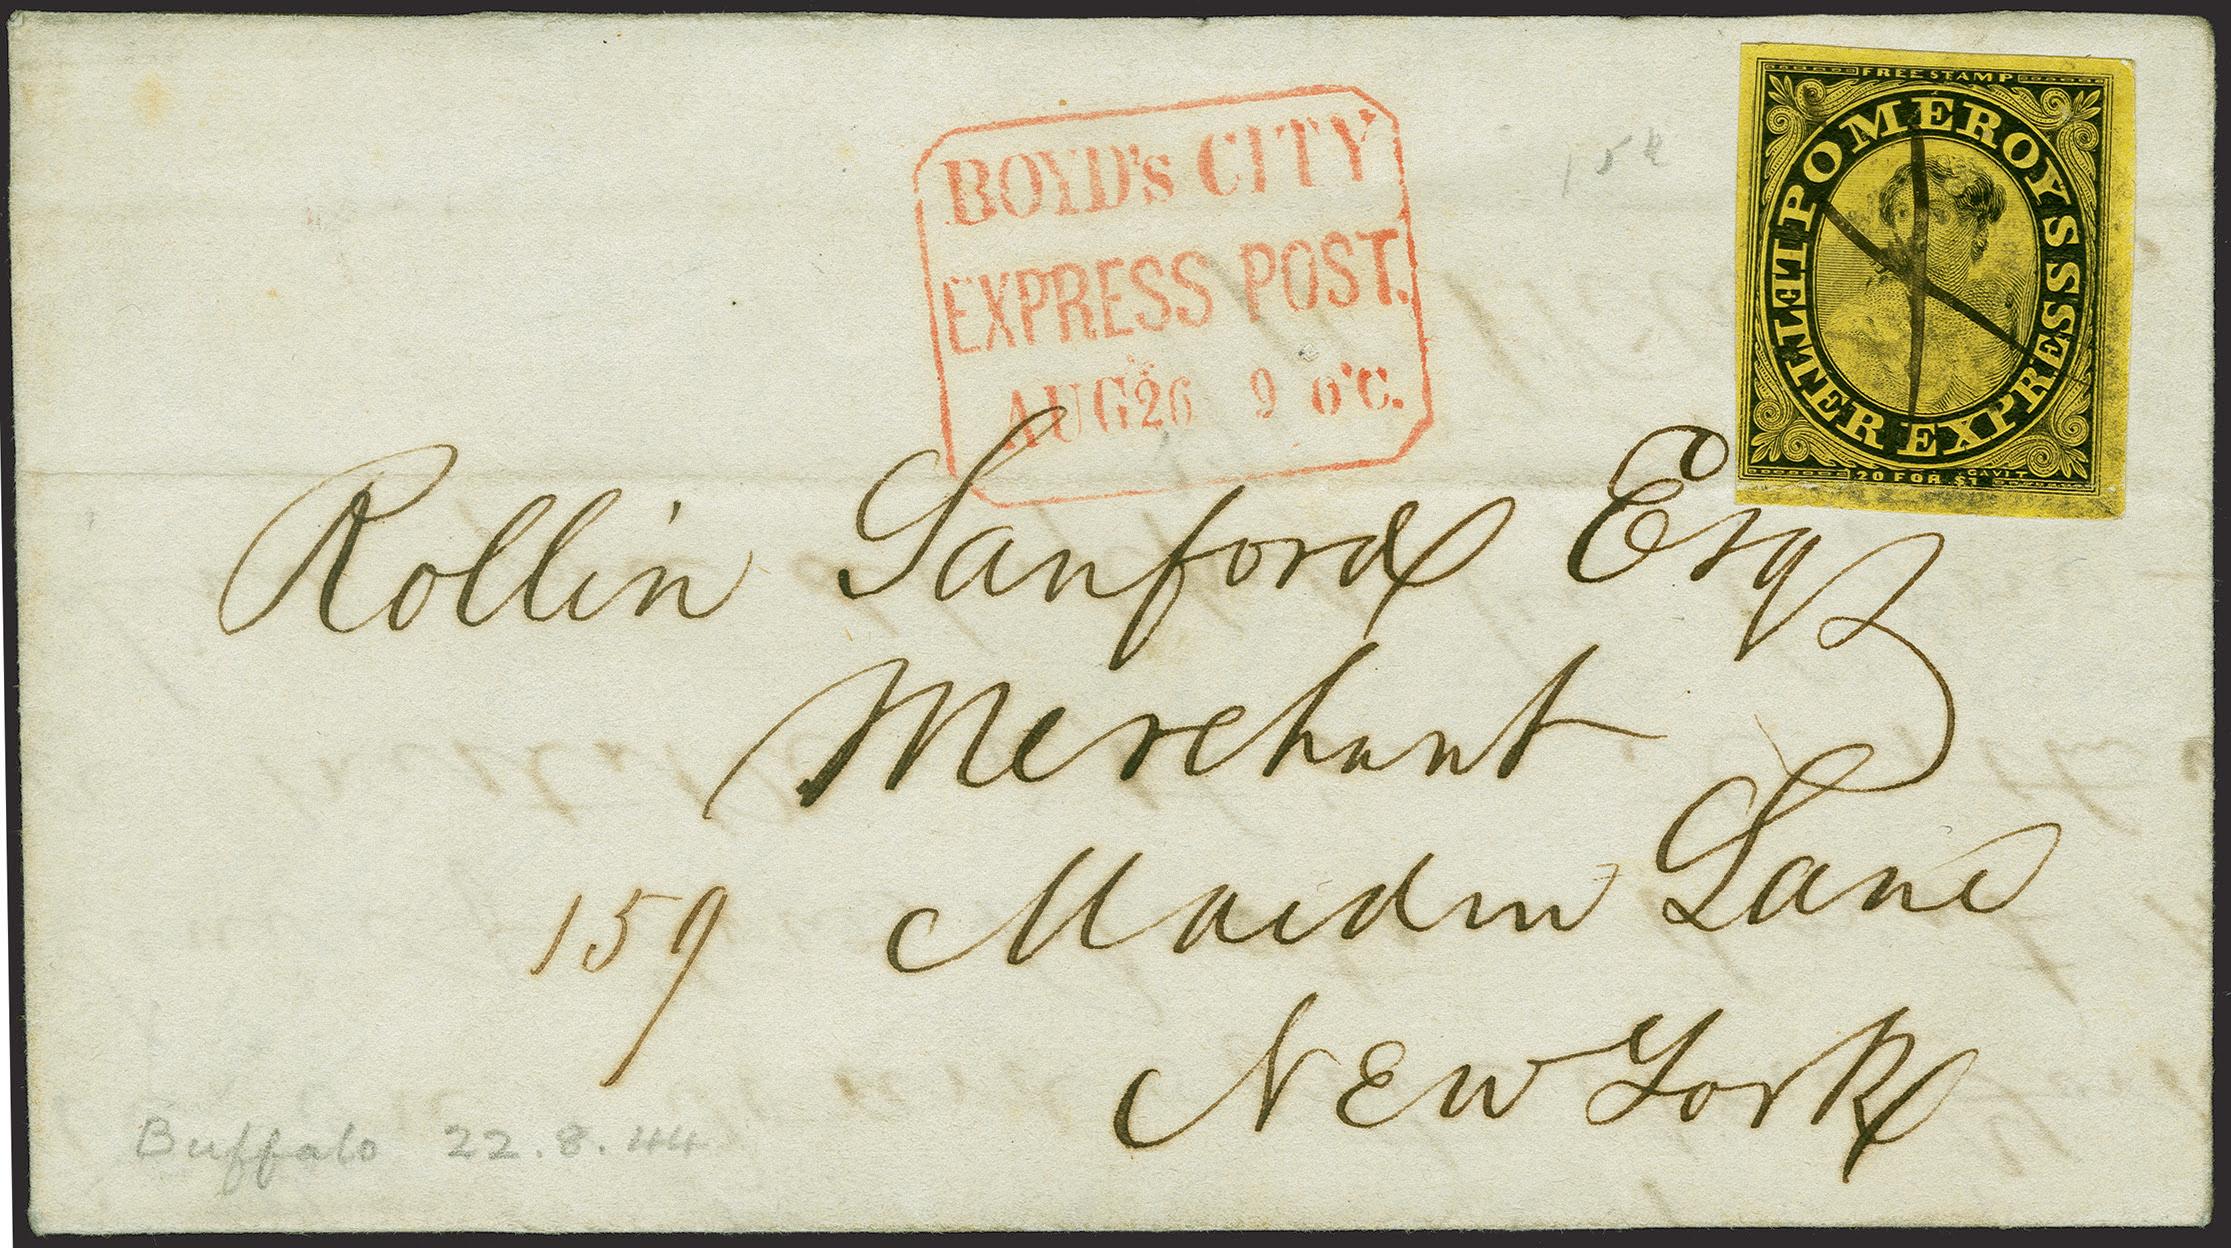 FREE STAMP
POMEROYS LETTER EXPRESS
20 FOR $1 GAVIT
BOYD's CITY
EXPRESS POST.
AUG 26 9 o'C.
Rollin Sanford Esq
Merchant
159 Maiden Lane
New York
Buffalo 22.8.44